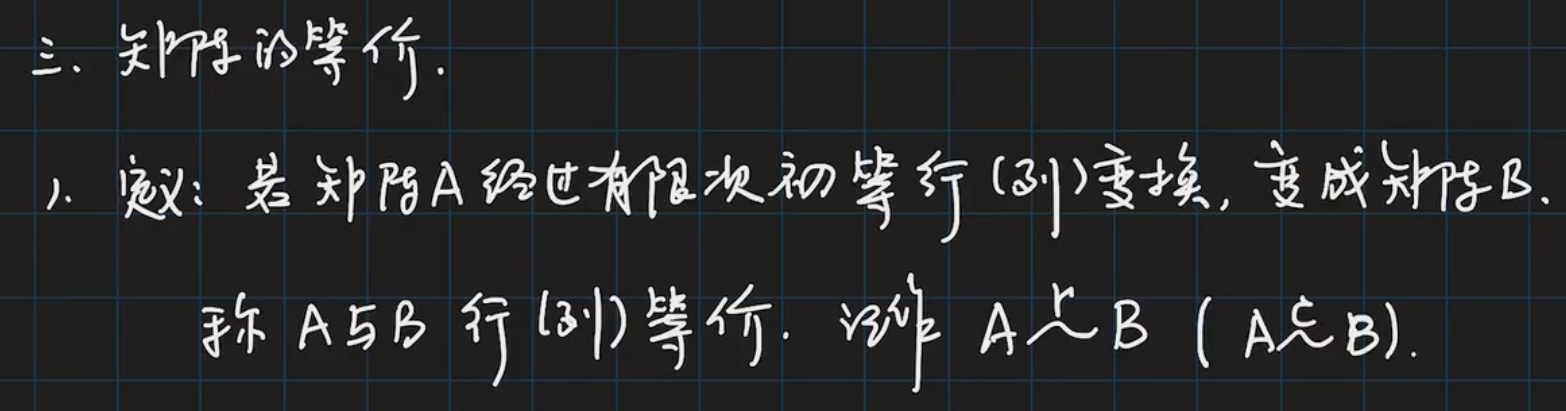 三. 矩阵的等价.
1. 定义: 若矩阵A经过有限次初等行(列)变换, 变成矩阵B.
称 A与B 行(列)等价. 记作 A r~ B ( A c~ B).